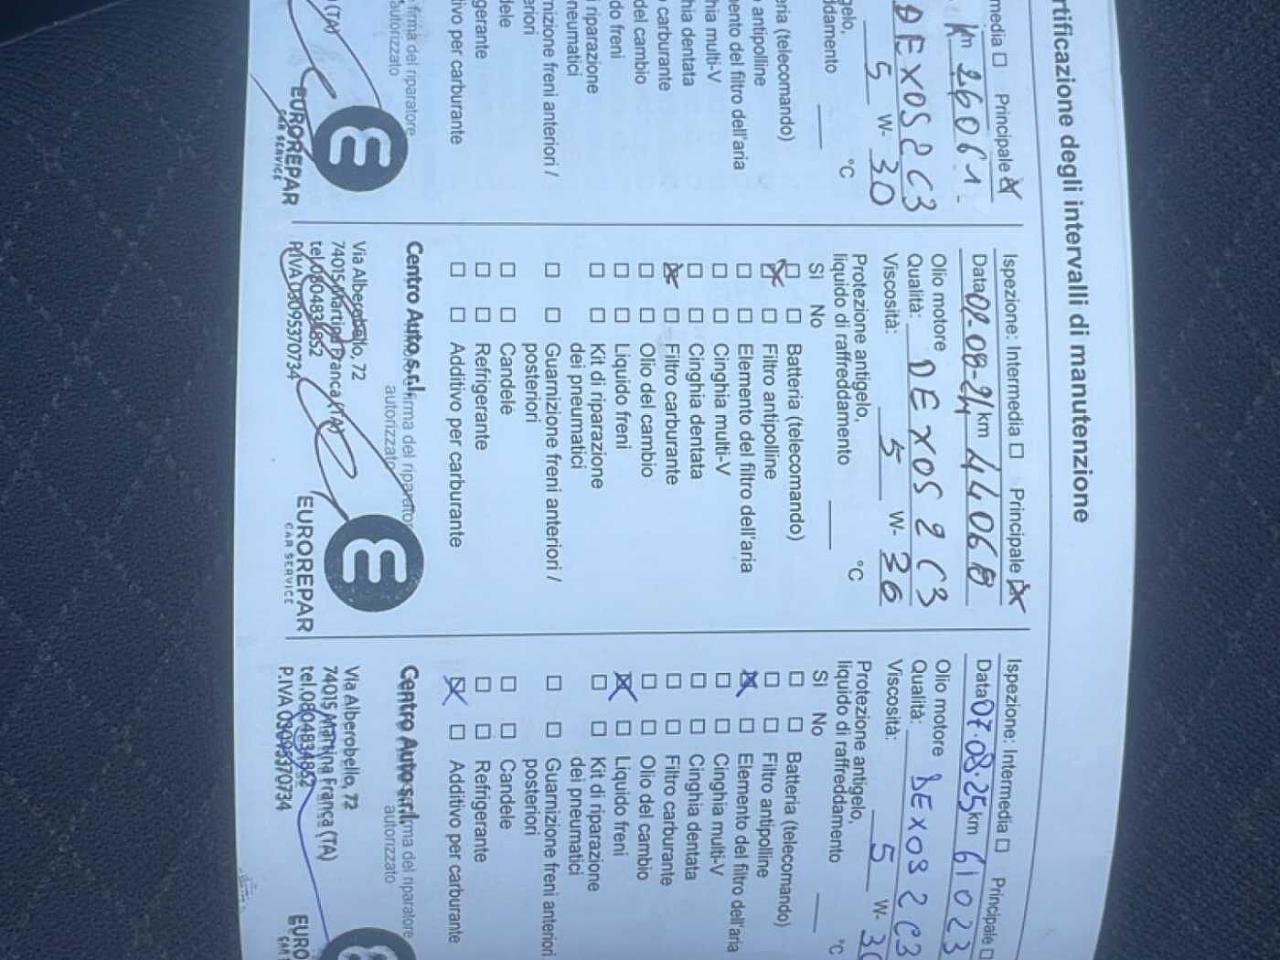 rtificazione degli intervalli di manutenzione
media Principale
Km 26061.
DEXOS 2 C3
5 W- 30
gelo,
ddamento °C
eria (telecomando)
antipolline
ento del filtro dell'aria
hia multi-V
hia dentata
carburante
del cambio
do freni
i riparazione
neumatici
nizione freni anteriori /
eriori
dele
gerante
ivo per carburante
firma del riparatore
autorizzato
(TA)
EUROREPAR
CAR SERVICE
Ispezione: Intermedia Principale
Data 08-08-24 km 44060
Olio motore
Qualità: DEXOS 2 C3
Viscosità: 5 W- 36
Protezione antigelo,
liquido di raffreddamento °C
Sì No
Batteria (telecomando)
Filtro antipolline
Elemento del filtro dell'aria
Cinghia multi-V
Cinghia dentata
Filtro carburante
Olio del cambio
Liquido freni
Kit di riparazione
dei pneumatici
Guarnizione freni anteriori /
posteriori
Candele
Refrigerante
Additivo per carburante
Centro Auto s.r.l. firma del riparatore
autorizzato
Via Alberobello, 72
74015 Martina Franca (TA)
tel.0804834852
P.IVA 03095370734
EUROREPAR
CAR SERVICE
Ispezione: Intermedia Principale
Data 07.08.25 km 61023
Olio motore
Qualità: DEXOS 2 C3
Viscosità: 5 W- 30
Protezione antigelo,
liquido di raffreddamento °C
Sì No
Batteria (telecomando)
Filtro antipolline
Elemento del filtro dell'aria
Cinghia multi-V
Cinghia dentata
Filtro carburante
Olio del cambio
Liquido freni
Kit di riparazione
dei pneumatici
Guarnizione freni anteriori
posteriori
Candele
Refrigerante
Additivo per carburante
Centro Auto s.r.l. firma del riparatore
autorizzato
Via Alberobello, 72
74015 Martina Franca (TA)
tel.0804834852
P.IVA 03095370734
EURO
CAR